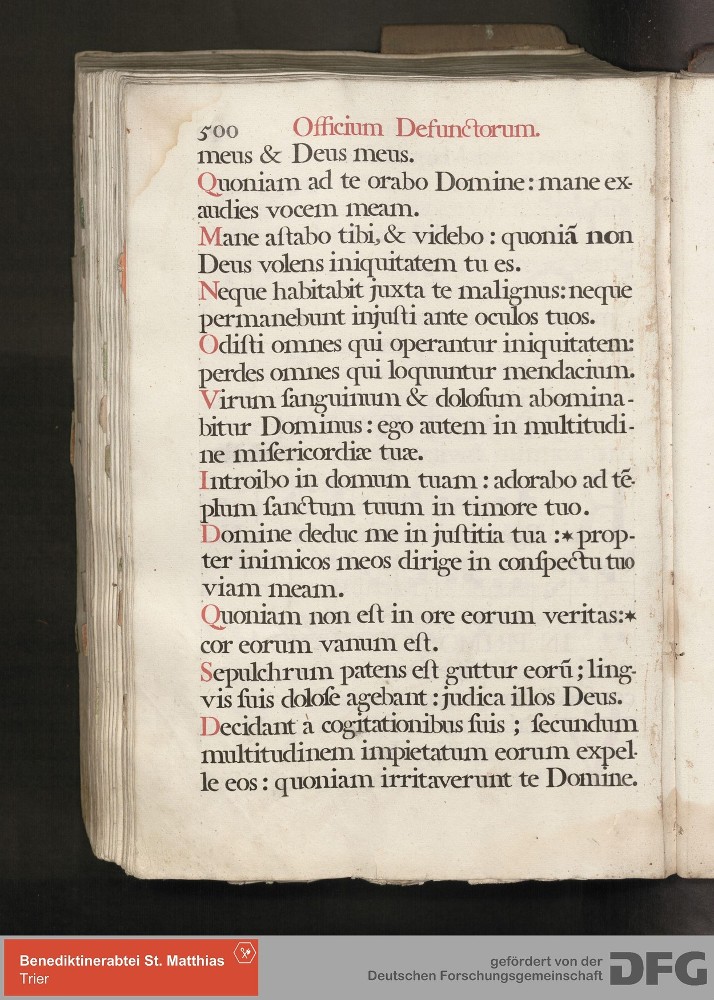 500 Officium Defunctorum.
meus & Deus meus.
Quoniam ad te orabo Domine: mane ex-
audies vocem meam.
Mane aſtabo tibi, & videbo : quoniã non
Deus volens iniquitatem tu es.
Neque habitabit juxta te malignus: neque
permanebunt injuſti ante oculos tuos.
Odiſti omnes qui operantur iniquitatem:
perdes omnes qui loquuntur mendacium.
Virum ſanguinum & doloſum abomina-
bitur Dominus : ego autem in multitudi-
ne miſericordiæ tuæ.
Introibo in domum tuam : adorabo ad tẽ-
plum ſanctum tuum in timore tuo.
Domine deduc me in juſtitia tua :✶ prop-
ter inimicos meos dirige in conſpectu tuo
viam meam.
Quoniam non eſt in ore eorum veritas:✶
cor eorum vanum eſt.
Sepulchrum patens eſt guttur eorũ ; ling-
vis ſuis doloſe agebant : judica illos Deus.
Decidant à cogitationibus ſuis ; ſecundum
multitudinem impietatum eorum expel-
le eos : quoniam irritaverunt te Domine.
Benediktinerabtei St. Matthias
Trier
gefördert von der
Deutschen Forschungsgemeinschaft DFG